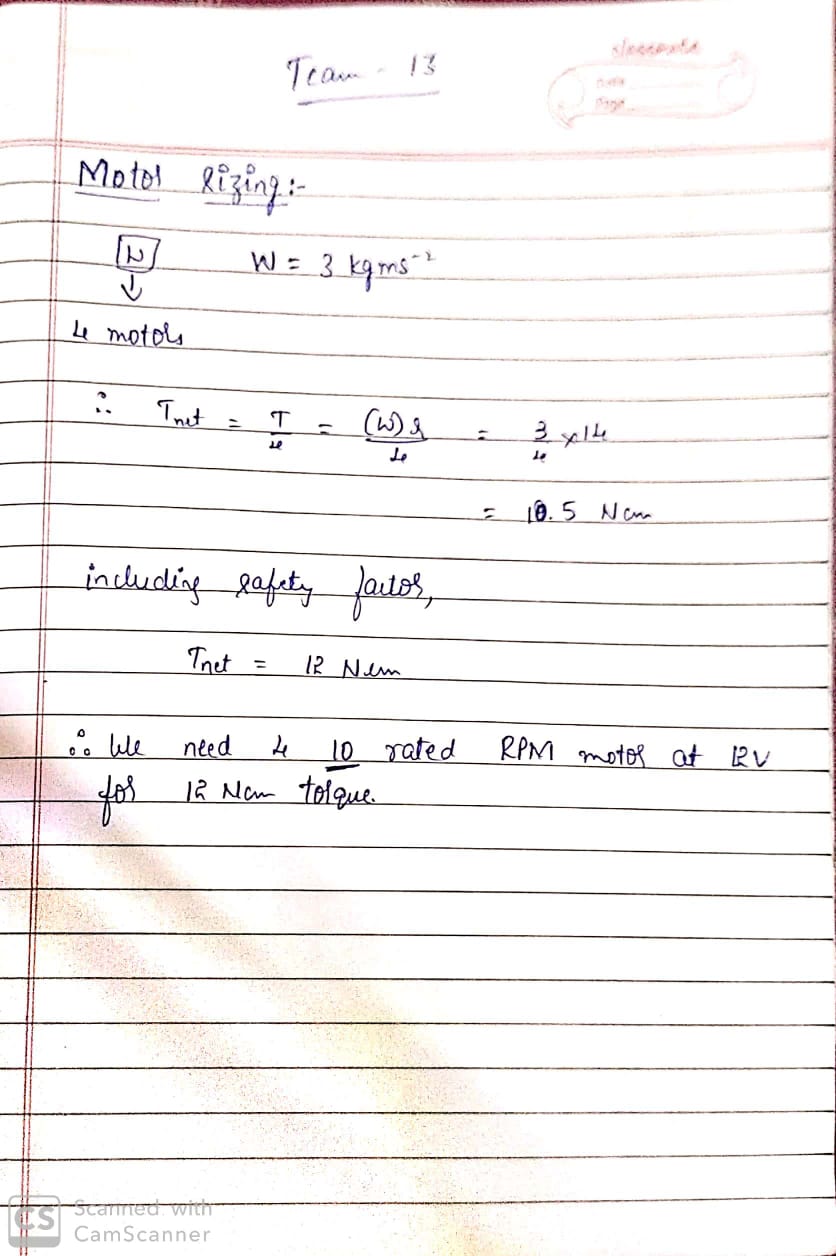 Team - 13
classmate
Date
Page
Motor Sizing :-
W
W = 3 kgms⁻²
4 motors
∴ Tnet = T/4 = (W)r/4 = 3/4 x14
= 10.5 Ncm
including safety factor,
Tnet = 12 Ncm
∴ We need 4 10 rated RPM motor at 12V
for 12 Ncm torque.
CS Scanned with
CamScanner